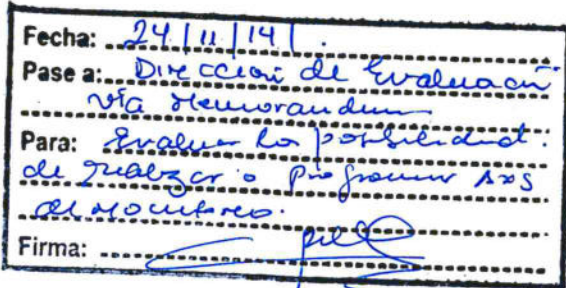 Fecha: 24/11/14/.
Pase a: Dirección de Evaluación
vía Memorandum
Para: Evaluar la posibilidad.
de realizar o programar
Firma: